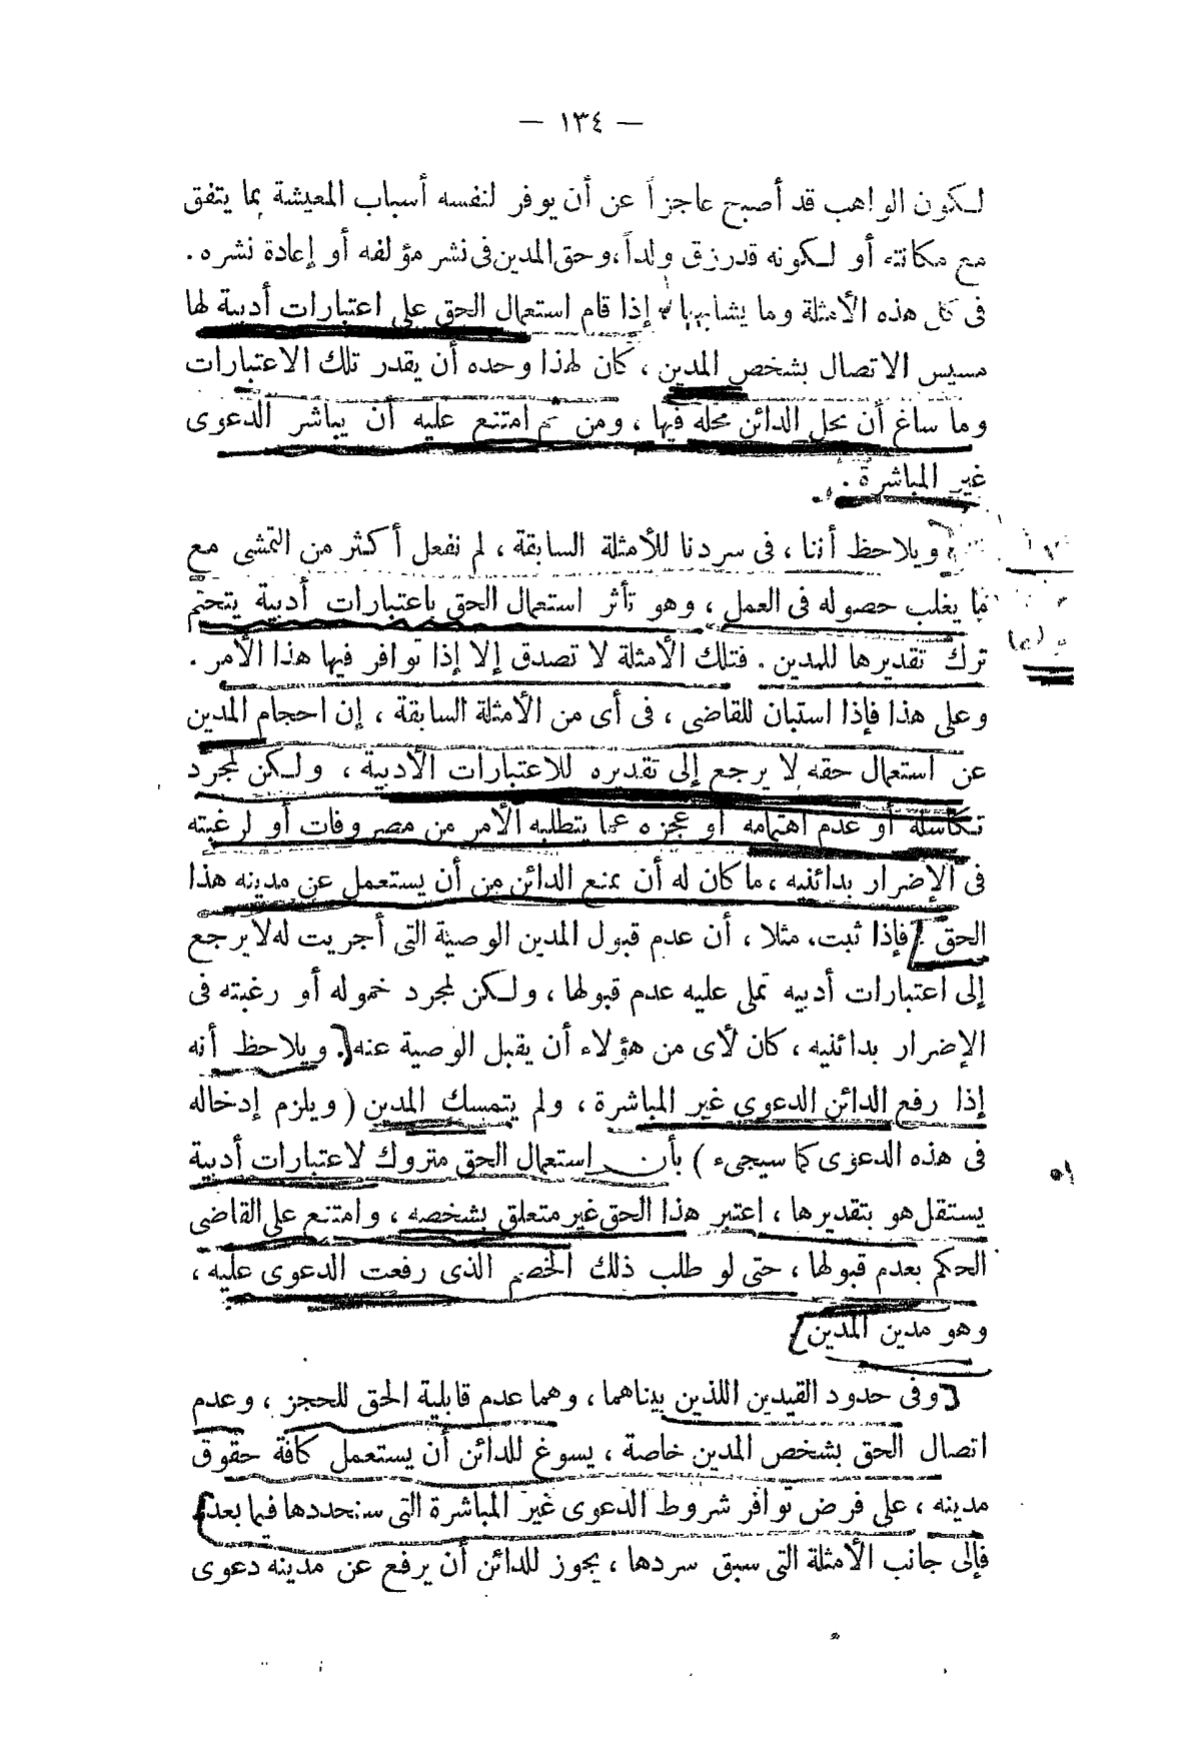 — ١٣٤ —
لكون الواهب قد أصبح عاجزاً عن أن يوفر لنفسه أسباب المعيشة بما يتفق
مع مكانته أو لكونه قد رزق ولداً ، وحق المدين فى نشر مؤلفه أو إعادة نشره .
فى كل هذه الأمثلة وما يشابهها ، إذا قام استعمال الحق على اعتبارات أدبية لها
مسيس الاتصال بشخص المدين ، كان لهذا وحده أن يقدر تلك الاعتبارات
وما ساغ أن يحل الدائن محله فيها ، ومن ثم امتنع عليه أن يباشر الدعوى
غير المباشرة .
ويلاحظ أننا ، فى سردنا للأمثلة السابقة ، لم نفعل أكثر من التمشى مع
ما يغلب حصوله فى العمل ، وهو تأثر استعمال الحق باعتبارات أدبية يتحتم
ترك تقديرها للمدين . فتلك الأمثلة لا تصدق إلا إذا توافر فيها هذا الأمر .
وعلى هذا فإذا استبان للقاضى ، فى أى من الأمثلة السابقة ، إن احجام المدين
عن استعمال حقه لا يرجع إلى تقديره للاعتبارات الأدبية ، ولكن لمجرد
تكاسله أو عدم اهتمامه أو عجزه عما يتطلبه الأمر من مصروفات أو لرغبته
فى الإضرار بدائنيه ، ما كان له أن يمنع الدائن من أن يستعمل عن مدينه هذا
الحق . فإذا ثبت ، مثلا ، أن عدم قبول المدين الوصية التى أجريت له لا يرجع
إلى اعتبارات أدبيه تملى عليه عدم قبولها ، ولكن لمجرد خموله أو رغبته فى
الإضرار بدائنيه ، كان لأى من هؤلاء أن يقبل الوصية عنه . ويلاحظ أنه
إذا رفع الدائن الدعوى غير المباشرة ، ولم يتمسك المدين ( ويلزم إدخاله
فى هذه الدعوى كما سيجىء ) بأن استعمال الحق متروك لاعتبارات أدبية
يستقل هو بتقديرها ، اعتبر هذا الحق غير متعلق بشخصه ، وامتنع على القاضى
الحكم بعدم قبولها ، حتى لو طلب ذلك الخصم الذى رفعت الدعوى عليه ،
وهو مدين المدين
وفى حدود القيدين اللذين بيناهما ، وهما عدم قابلية الحق للحجز ، وعدم
اتصال الحق بشخص المدين خاصة ، يسوغ للدائن أن يستعمل كافة حقوق
مدينه ، على فرض توافر شروط الدعوى غير المباشرة التى سنحددها فيما بعد .
فإلى جانب الأمثلة التى سبق سردها ، يجوز للدائن أن يرفع عن مدينه دعوى